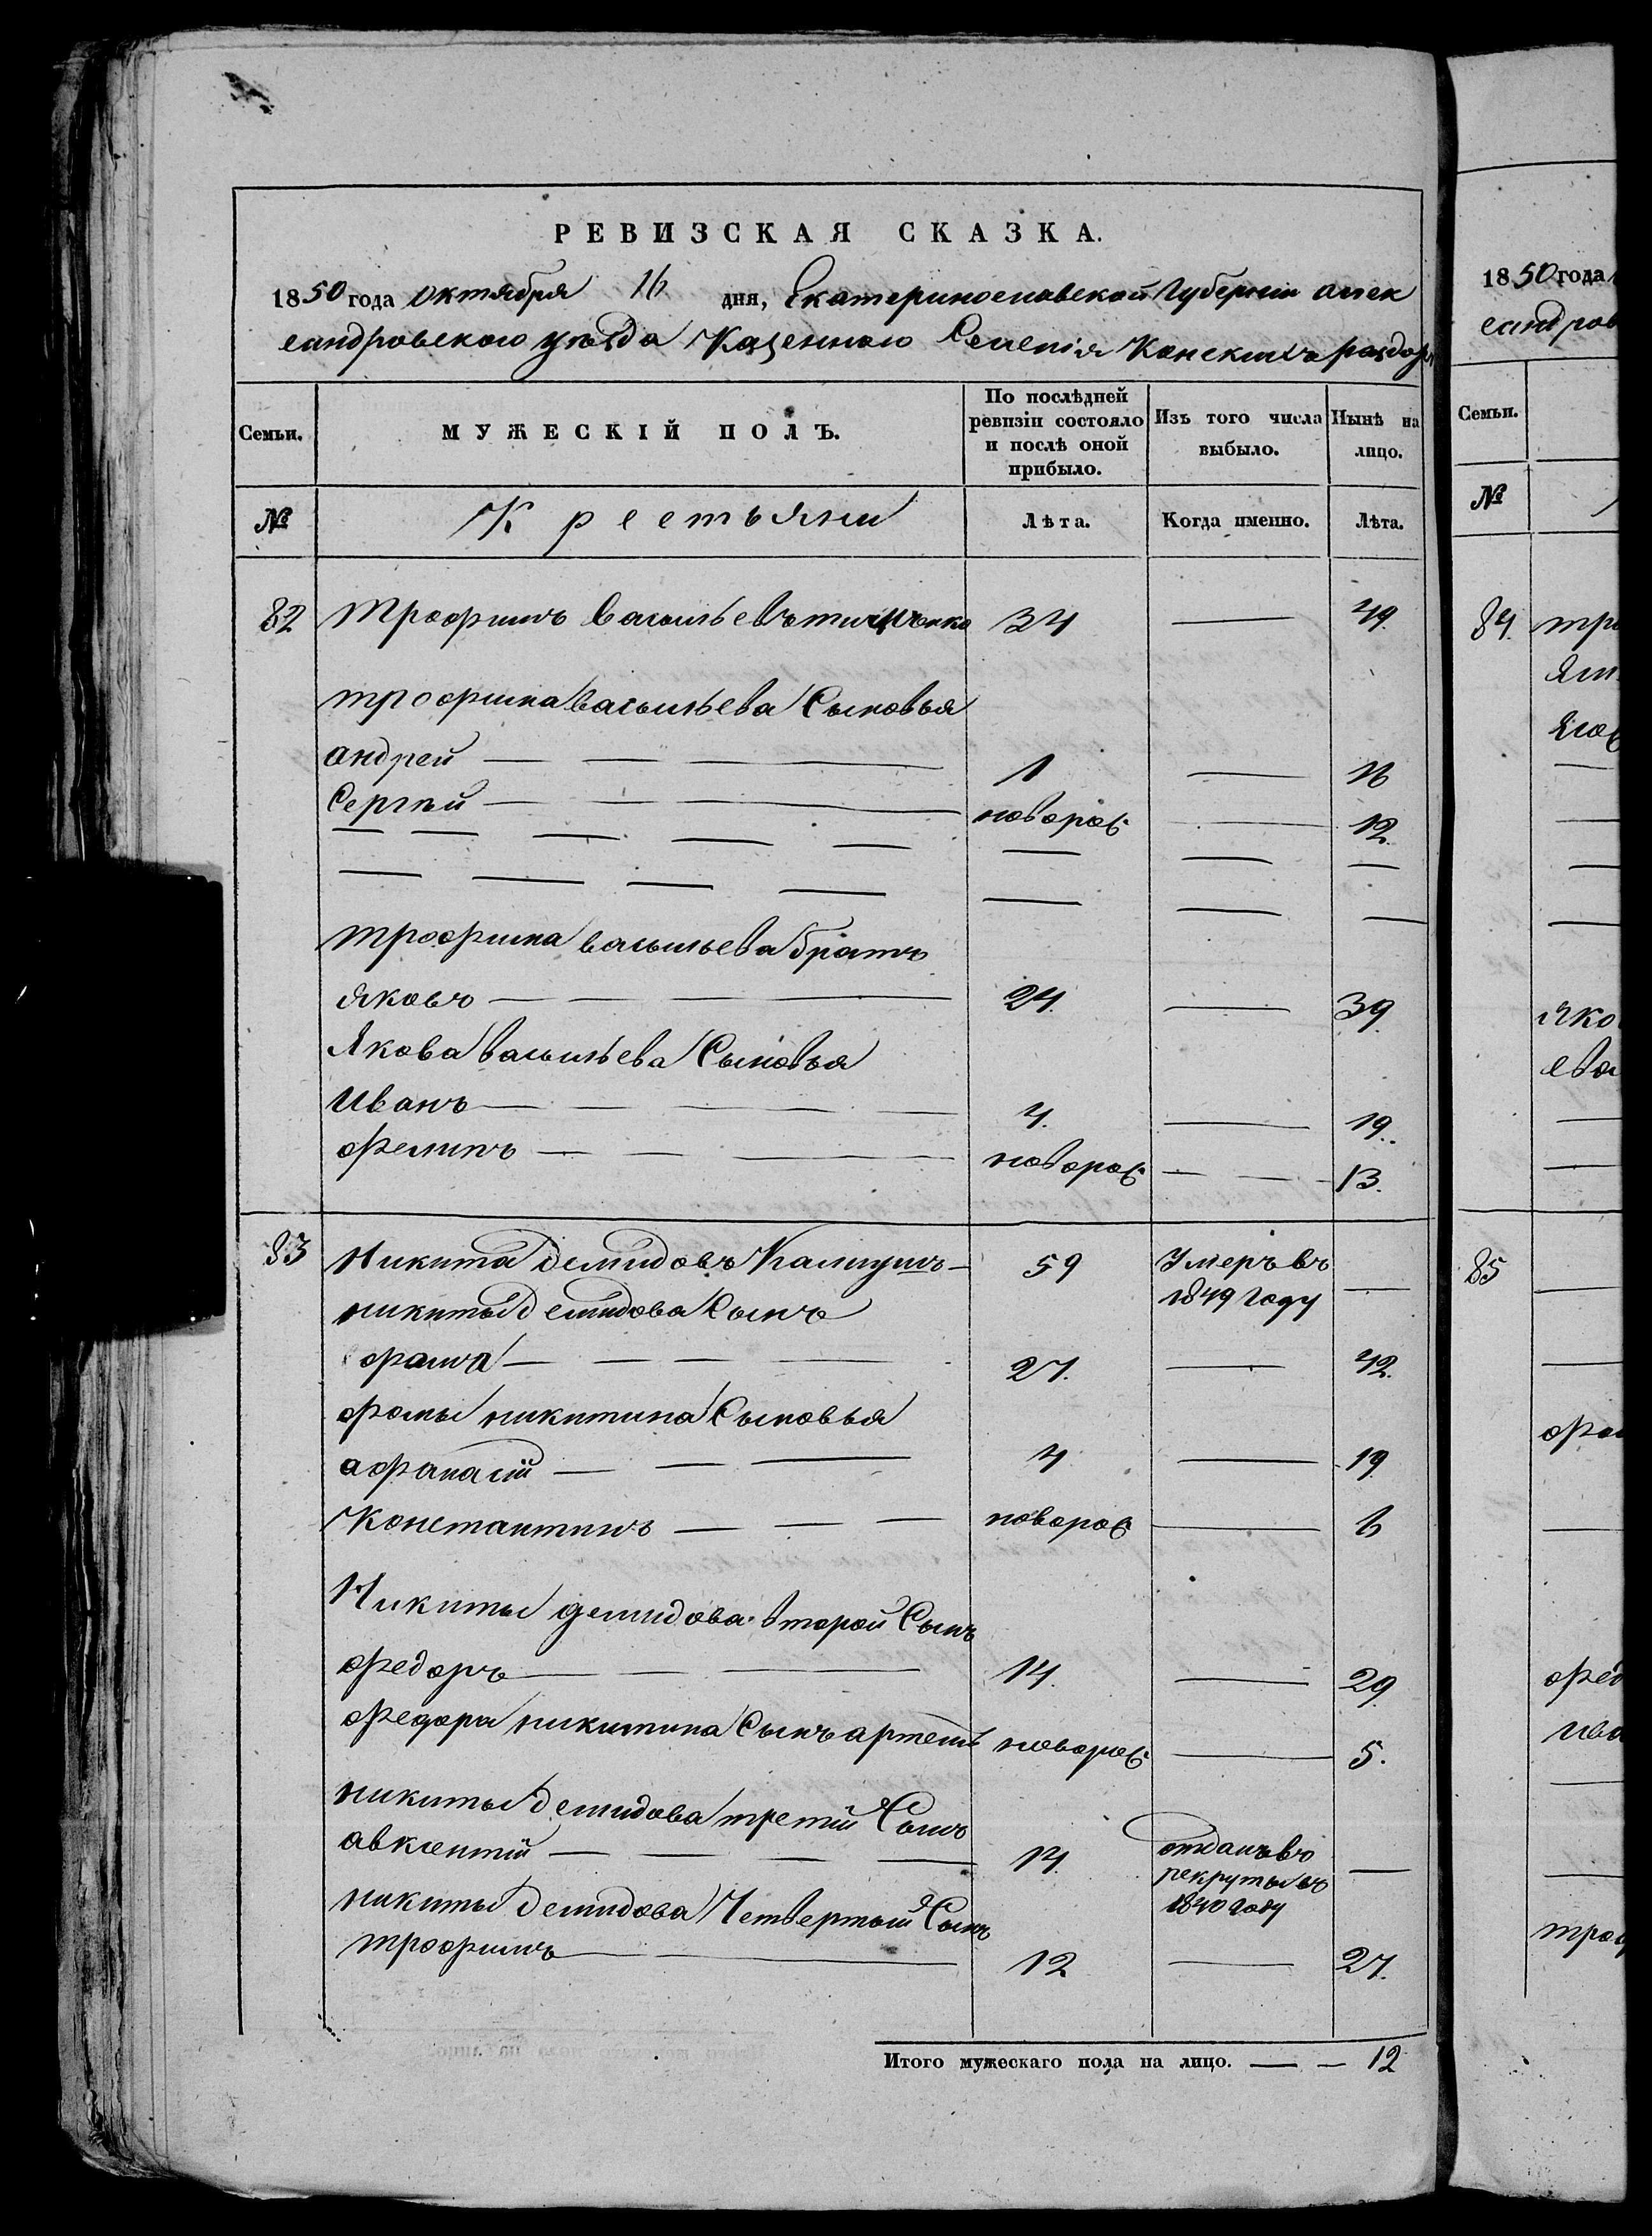 РЕВИЗСКАЯ СКАЗКА.
1850 года октября 16 дня, Екатеринославской губернии алек
сандровского уезда Казенного Селенія Конскихъ раздоръ
Семьи. МУЖЕСКІЙ ПОЛЪ. По послѣдней ревизіи состояло и послѣ оной прибыло. Изъ того числа выбыло. Нынѣ на лицо.
№ Крестьяни Лѣта. Когда именно. Лѣта.
82 трофимъ васильевъ 34 — 49.
трофима васильева Сыновья
андрей — 1 — 16
Сергѣй — новорож — 12.
трофима васильева братъ
яковъ — 24. — 39.
Якова васильева Сыновья
Иванъ — 4. — 19.
филипъ — новорож — 13.
83 Никита Демидовъ 59 Умеръ въ —
никиты Демидова Сынъ 1849 году
фама — 27. — 42.
фомы никитина Сыновья
афанасій — 4 — 19
Константинъ — новорож — 6
Никиты демидова второй Сынъ
федоръ — 14. — 29.
федора никитина Сынъ артемъ новорож — 5.
никиты Демидова третій Сынъ
авксентій — 14. отданъ въ —
рекруты въ
никиты Демидова Четвертый Сынъ 1840 году
трофимъ — 12 — 27.
Итого мужескаго пола на лицо. — — 12
1850 года
сандров
Семьи.
№
84.
яко
85